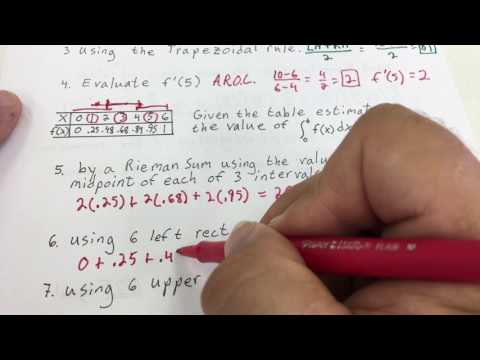 3 using the Trapezoidal rule.
2
4. Evaluate f'(5) A.R.O.C. 10-6/6-4 = 4/2 = 2 f'(5) = 2
x 0 1 2 3 4 5 6
f(x) 0 .25 .48 .68 .84 .95 1
Given the table estimat
the value of ∫ f(x)dx
5. by a Rieman Sum using the valu
midpoint of each of 3 interval
2(.25) + 2(.68) + 2(.95) =
6. using 6 left rect
0 + .25 + .4
7. using 6 upper